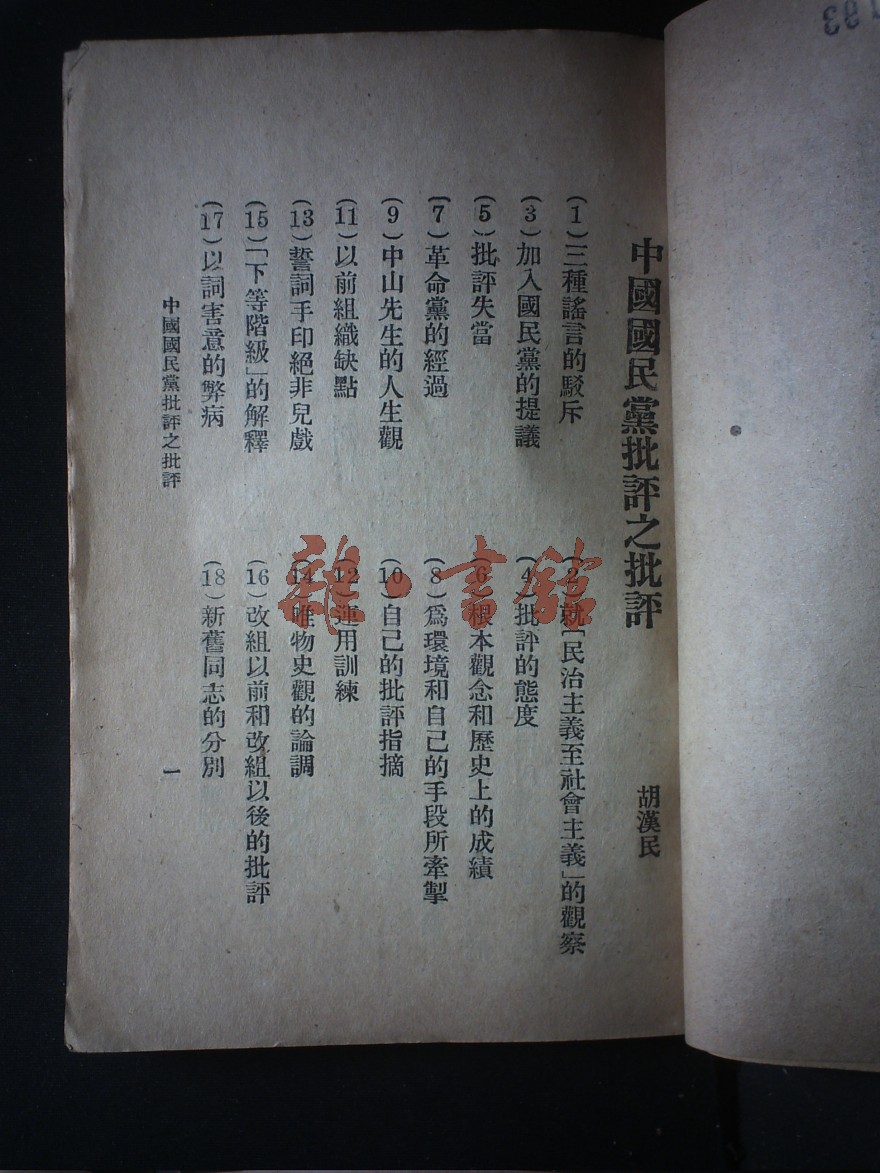 中國國民黨批評之批評
胡漢民
(1)三種謠言的駁斥
(2)就「民治主義至社會主義」的觀察
(3)加入國民黨的提議
(4)批評的態度
(5)批評失當
(6)根本觀念和歷史上的成績
(7)革命黨的經過
(8)爲環境和自己的手段所牽掣
(9)中山先生的人生觀
(10)自己的批評指摘
(11)以前組織缺點
(12)運用訓練
(13)誓詞手印絕非兒戲
(14)唯物史觀的論調
(15)「下等階級」的解釋
(16)改組以前和改組以後的批評
(17)以詞害意的弊病
(18)新舊同志的分別
中國國民黨批評之批評
一
雜·書館